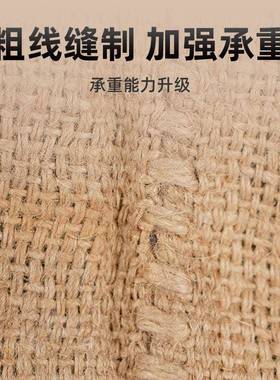 粗线缝制 加强承重
承重能力升级